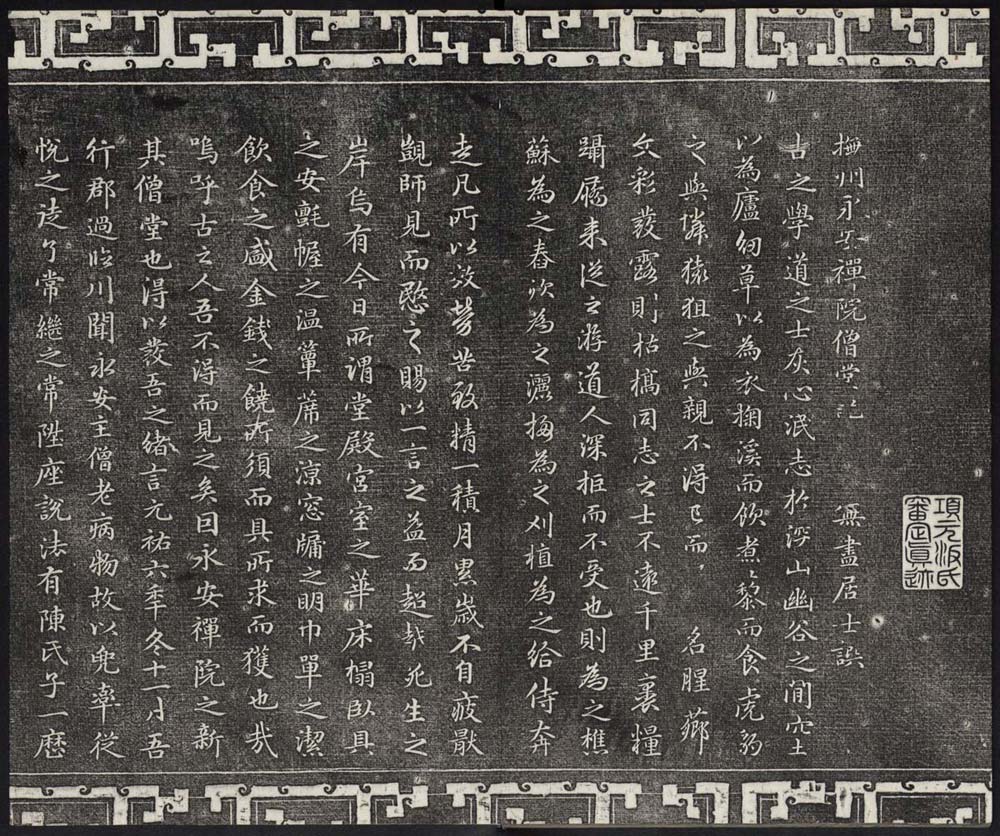 撫州永安禪院僧堂記　無盡居士譔
古之學道之士灰心泯志於深山幽谷之間穴土
以為廬紉草以為衣掬溪而飲煮藜而食虎豹
之與憐猿狙之與親不得已而名腥薌
文彩發露則枯槁同志之士不遠千里裹糧
躡屩來從之游道人深拒而不受也則為之樵
蘇為之舂炊為之灑掃為之刈植為之給侍奔
走凡所以效勞苦致精一積月累歲不自疲厭
覬師見而愍之賜以一言之益而超越死生之
岸烏有今日所謂堂殿宮室之華床榻臥具
之安氈幄之温簟蓆之涼窓牖之明巾單之潔
飲食之盛金錢之饒所須而具所求而獲也哉
嗚呼古之人吾不得而見之矣曰永安禪院之新
其僧堂也得以發吾之緒言元祐六年冬十一月吾
行郡過臨川聞永安主僧老病物故以兜率從
悅之徒了常繼之常陞座說法有陳氏子一歷
項元汴氏
審定真跡